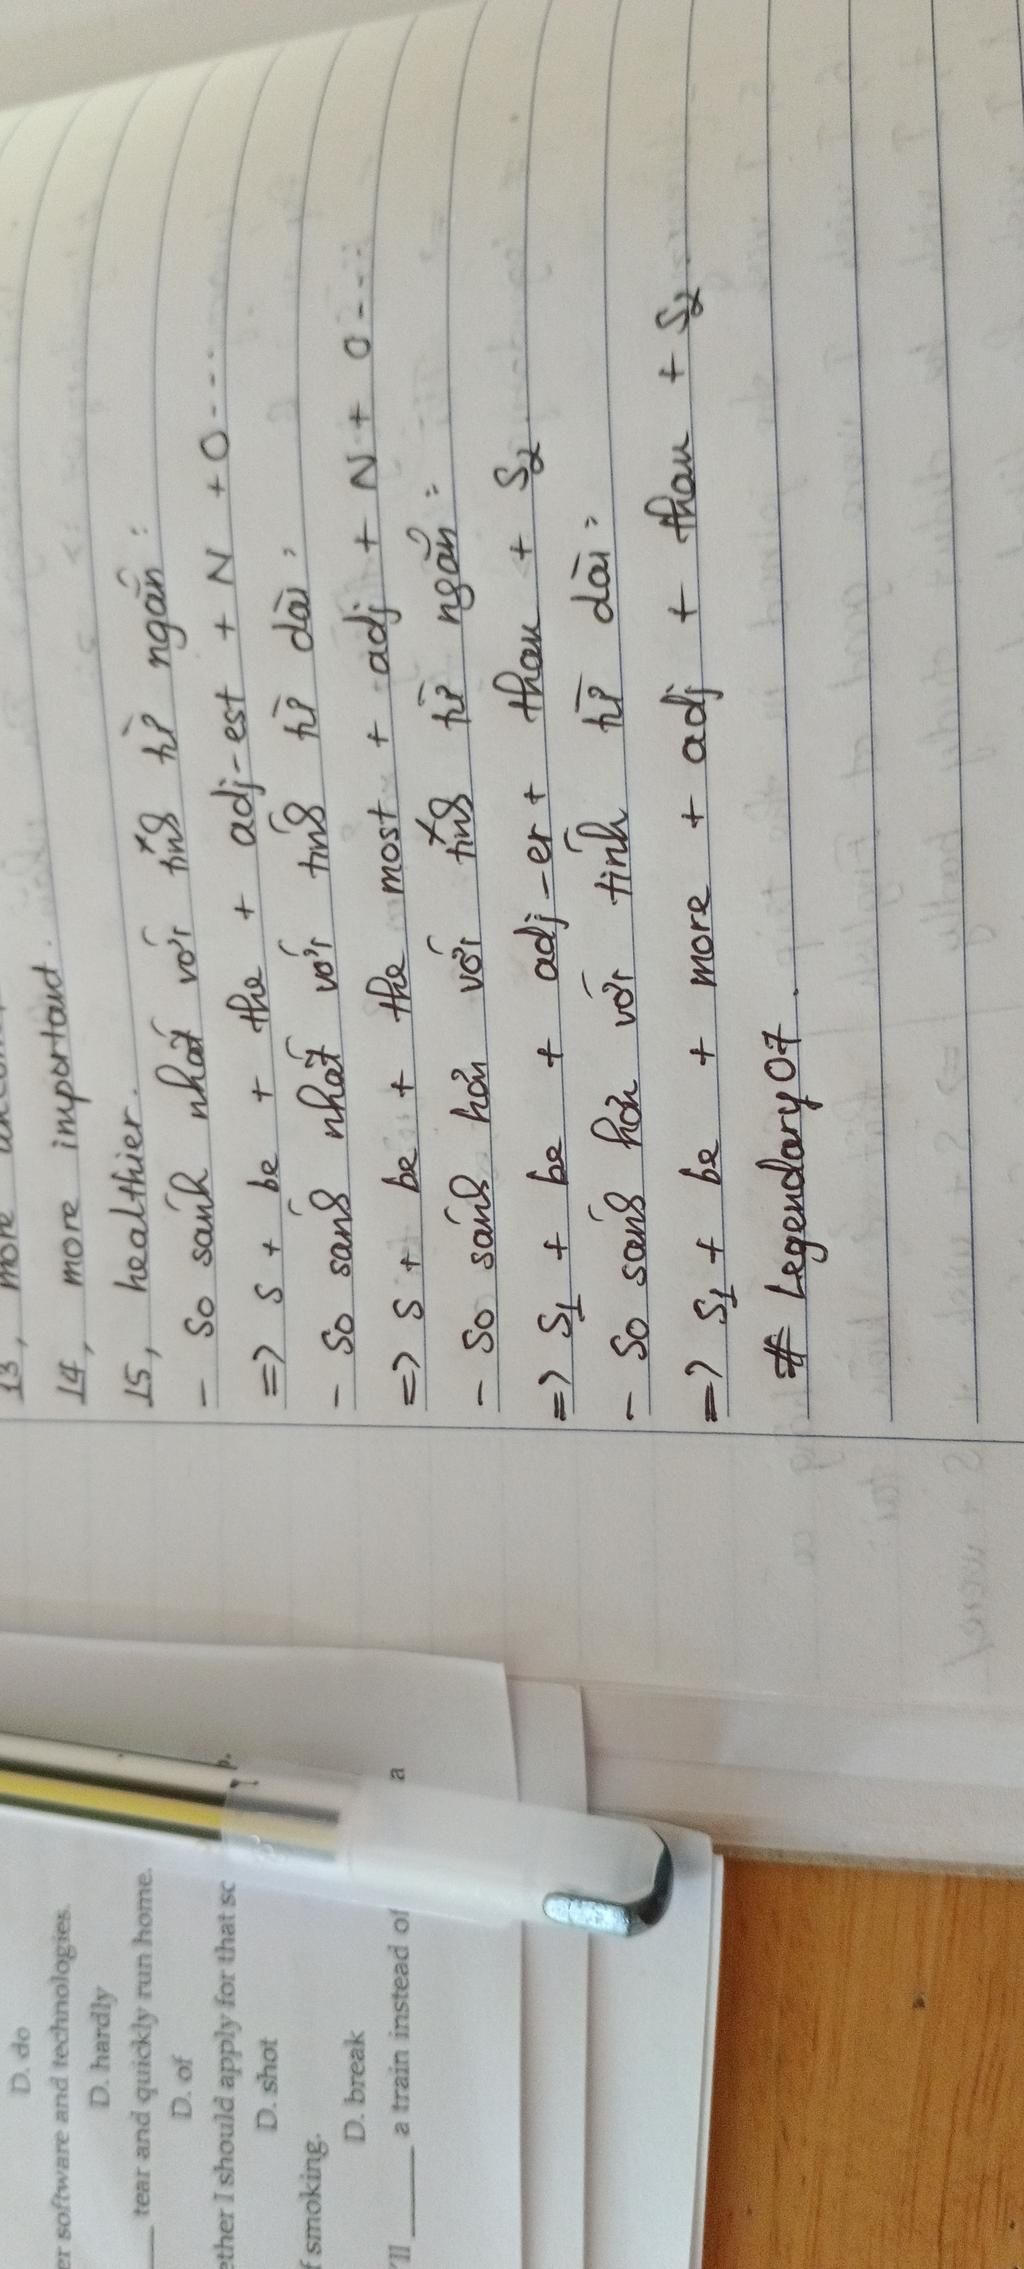 13, more
14, more important.
15, healthier.
- So sánh nhất với tính từ ngắn:
=> S + be + the + adj-est + N + O....
- So sánh nhất với tính từ dài:
=> S + be + the most + adj + N + O...
- So sánh hơn với tính từ ngắn:
=> S1 + be + adj-er + than + S2
- So sánh hơn với tính từ dài:
=> S1 + be + more + adj + than + S2
# Legendary07.
D. do
er software and technologies.
D. hardly
____ tear and quickly run home.
D. of
ether I should apply for that sc
D. shot
f smoking.
D. break
'll ____ a train instead of a